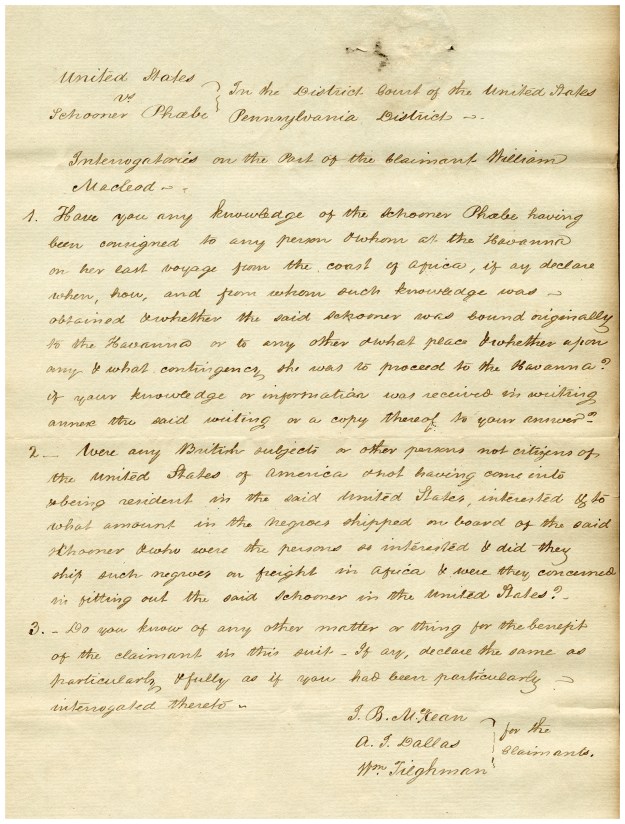 United States
vs
Schooner Phœbe } In the District Court of the United States
Pennsylvania District
Interrogatories on the Part of the Claimant William
Macleod
1. Have you any knowledge of the schooner Phœbe having
been consigned to any person & whom at the Havanna
on her last voyage from the coast of africa, if ay declare
when, how, and from whom such knowledge was
obtained & whether the said schooner was bound originally
to the Havanna or to any other & what place & whether upon
any & what contingency she was to proceed to the Havanna?
if your knowledge or information was received in writing
annex the said writing or a copy thereof to your answer?
2 – Were any British subjects or other persons not citizens of
the United States of america & not having come into
& being resident in the said United States, interested & to
what amount in the negroes shipped on board of the said
schooner & who were the persons so interested & did they
ship such negroes on freight in africa & were they concerned
in fitting out the said schooner in the United States? –
3. – Do you know of any other matter or thing for the benefit
of the claimant in this suit – If ay, declare the same as
particularly & fully as if you had been particularly
interrogated thereto –
J. B. McKean
A. J. Dallas
Wm Tilghman } for the
Claimants.